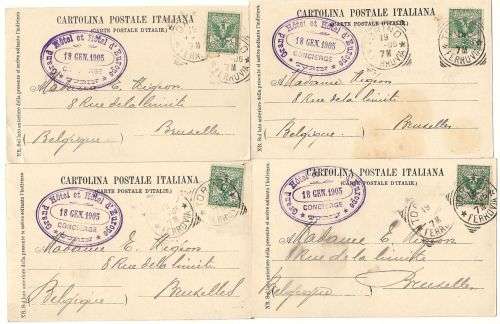 CARTOLINA POSTALE ITALIANA
(CARTE POSTALE D'ITALIE)
Grand Hôtel et Hôtel d'Europe
18 GEN. 1905
FERROVIA
Madame E. Higion
8 Rue de la limite
Belgique
Bruxelles
NB. Sul lato anteriore della presente si scrive soltanto l'indirizzo
CARTOLINA POSTALE ITALIANA
(CARTE POSTALE D'ITALIE)
Grand Hôtel et Hôtel d'Europe
18 GEN. 1905
CONCIERGE
TORINO
19
7 M
FERROVIA
Madame Higion
8 Rue de la limite
Belgique
Bruxelles
NB. Sul lato anteriore della presente si scrive soltanto l'indirizzo
CARTOLINA POSTALE ITALIANA
(CARTE POSTALE D'ITALIE)
Grand Hôtel et Hôtel d'Europe
18 GEN. 1905
CONCIERGE
TORINO
FERROVIA
Madame E. Higion
8 Rue de la limite
Belgique
Bruxelles
NB. Sul lato anteriore della presente si scrive soltanto l'indirizzo
CARTOLINA POSTALE ITALIANA
(CARTE POSTALE D'ITALIE)
Grand Hôtel et Hôtel d'Europe
18 GEN. 1905
CONCIERGE
19
7 M
FERROVIA
Madame E. Higion
8 Rue de la limite
Bruxelles
Belgique
NB. Sul lato anteriore della presente si scrive soltanto l'indirizzo